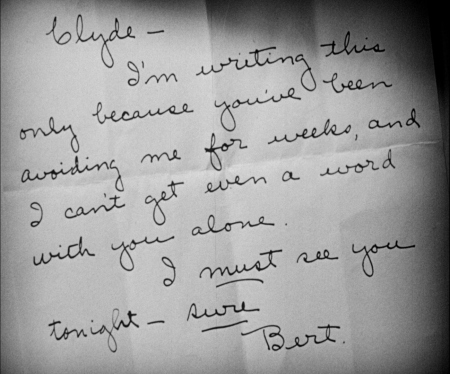 Clyde —
I'm writing this
only because you've been
avoiding me for weeks, and
I can't get even a word
with you alone.
I must see you
tonight — sure
Bert.